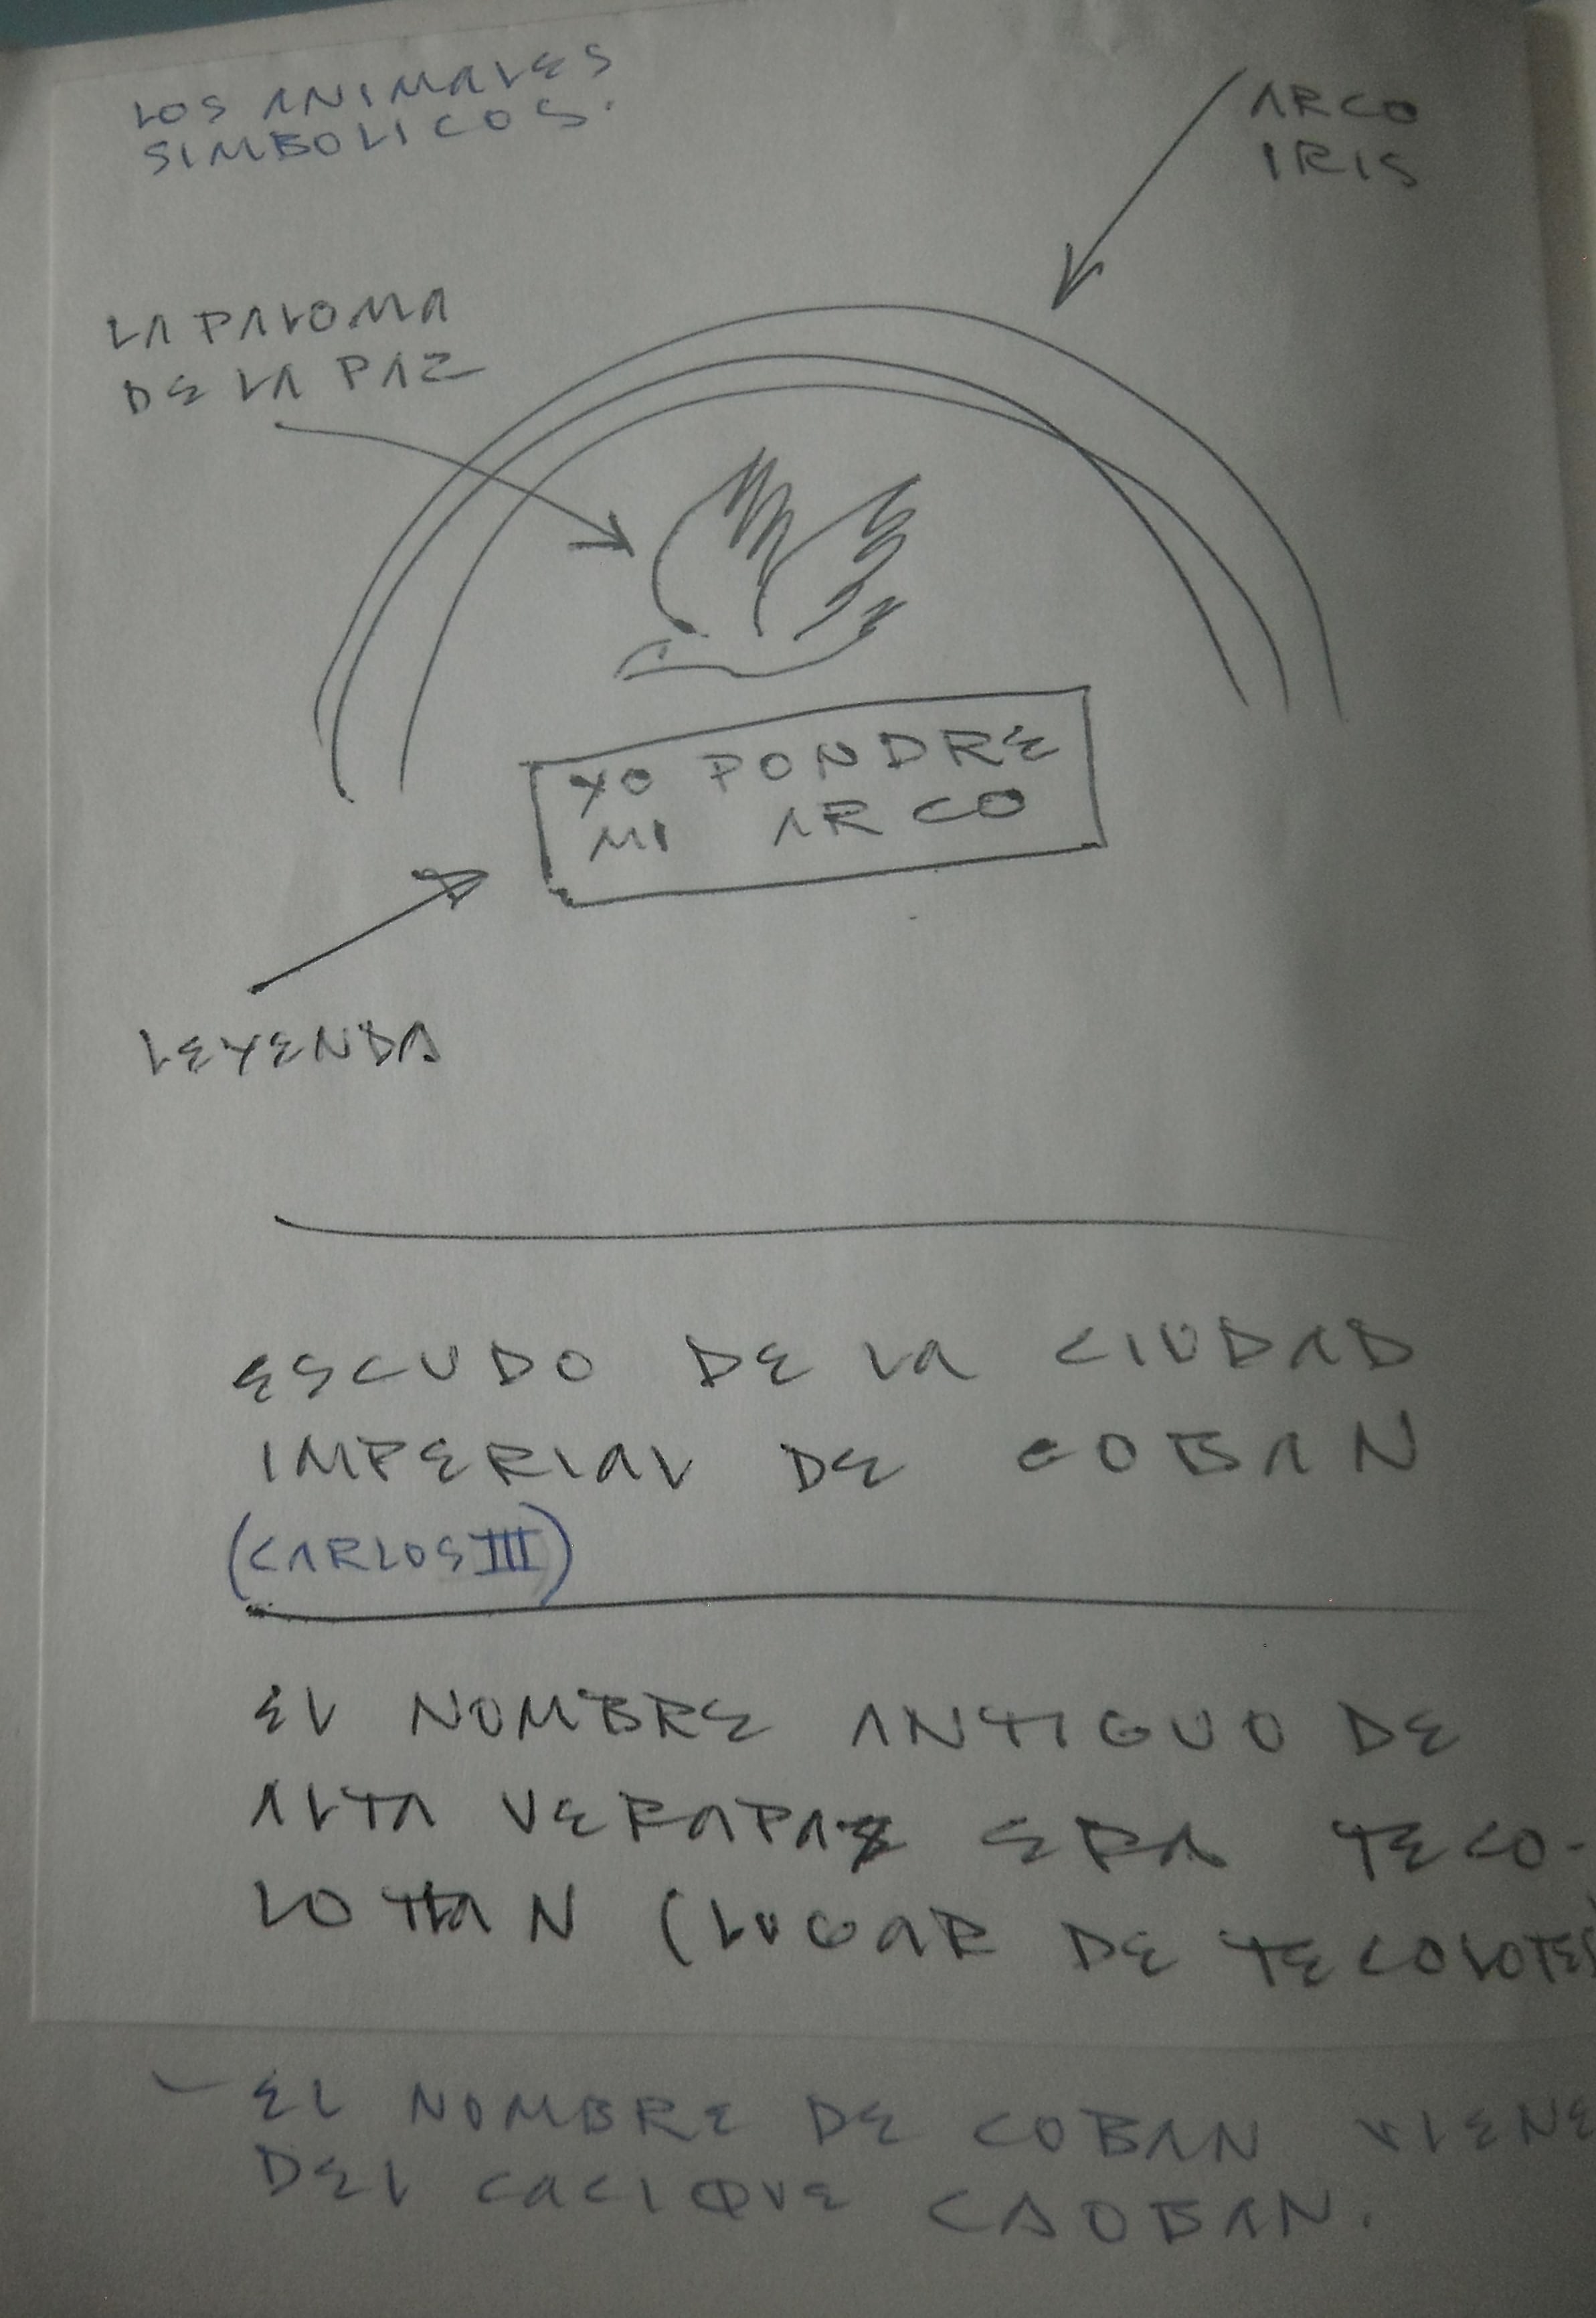 LOS ANIMALES
SIMBOLICOS.
ARCO
IRIS
LA PALOMA
DE LA PAZ
YO PONDRE
MI ARCO
LEYENDA
ESCUDO DE LA CIUDAD
IMPERIAL DE COBAN
(CARLOS III)
EL NOMBRE ANTIGUO DE
ALTA VERAPAZ ERA TECO-
LOTLAN (LUGAR DE TECOLOTES
- EL NOMBRE DE COBAN VIENE
DEL CACIQUE CAOBAN.